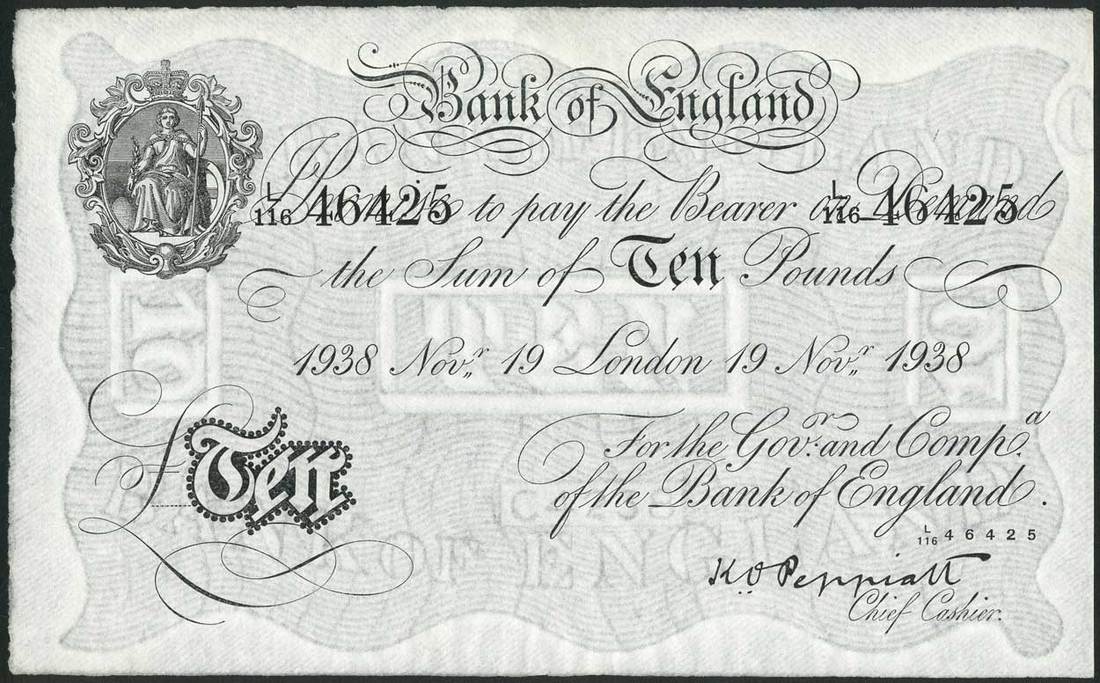 Bank of England
I Promise to pay the Bearer on Demand
L/116 46425 L/116 46425
the Sum of Ten Pounds
1938 Novr. 19 London 19 Novr. 1938
For the Govr. and Compa.
of the Bank of England.
£Ten
L/116 46425
K O Peppiatt
Chief Cashier.